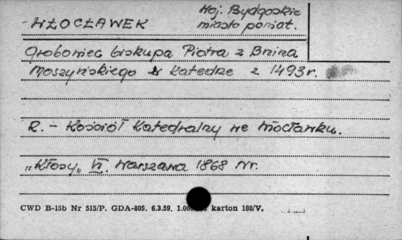 WŁOCŁAWEK
Woj. Bydgoskie
miasto powiat.
Grobowiec biskupa Piotra z Bnina
Moszyńskiego w Katedrze z 1493 r.
R. - Kościół Katedralny we Włocławku.
"Kłosy" VI. Warszawa 1868 Nr.
CWD B-15b Nr 515/P. GDA-805. 6.3.59. karton 180/V.